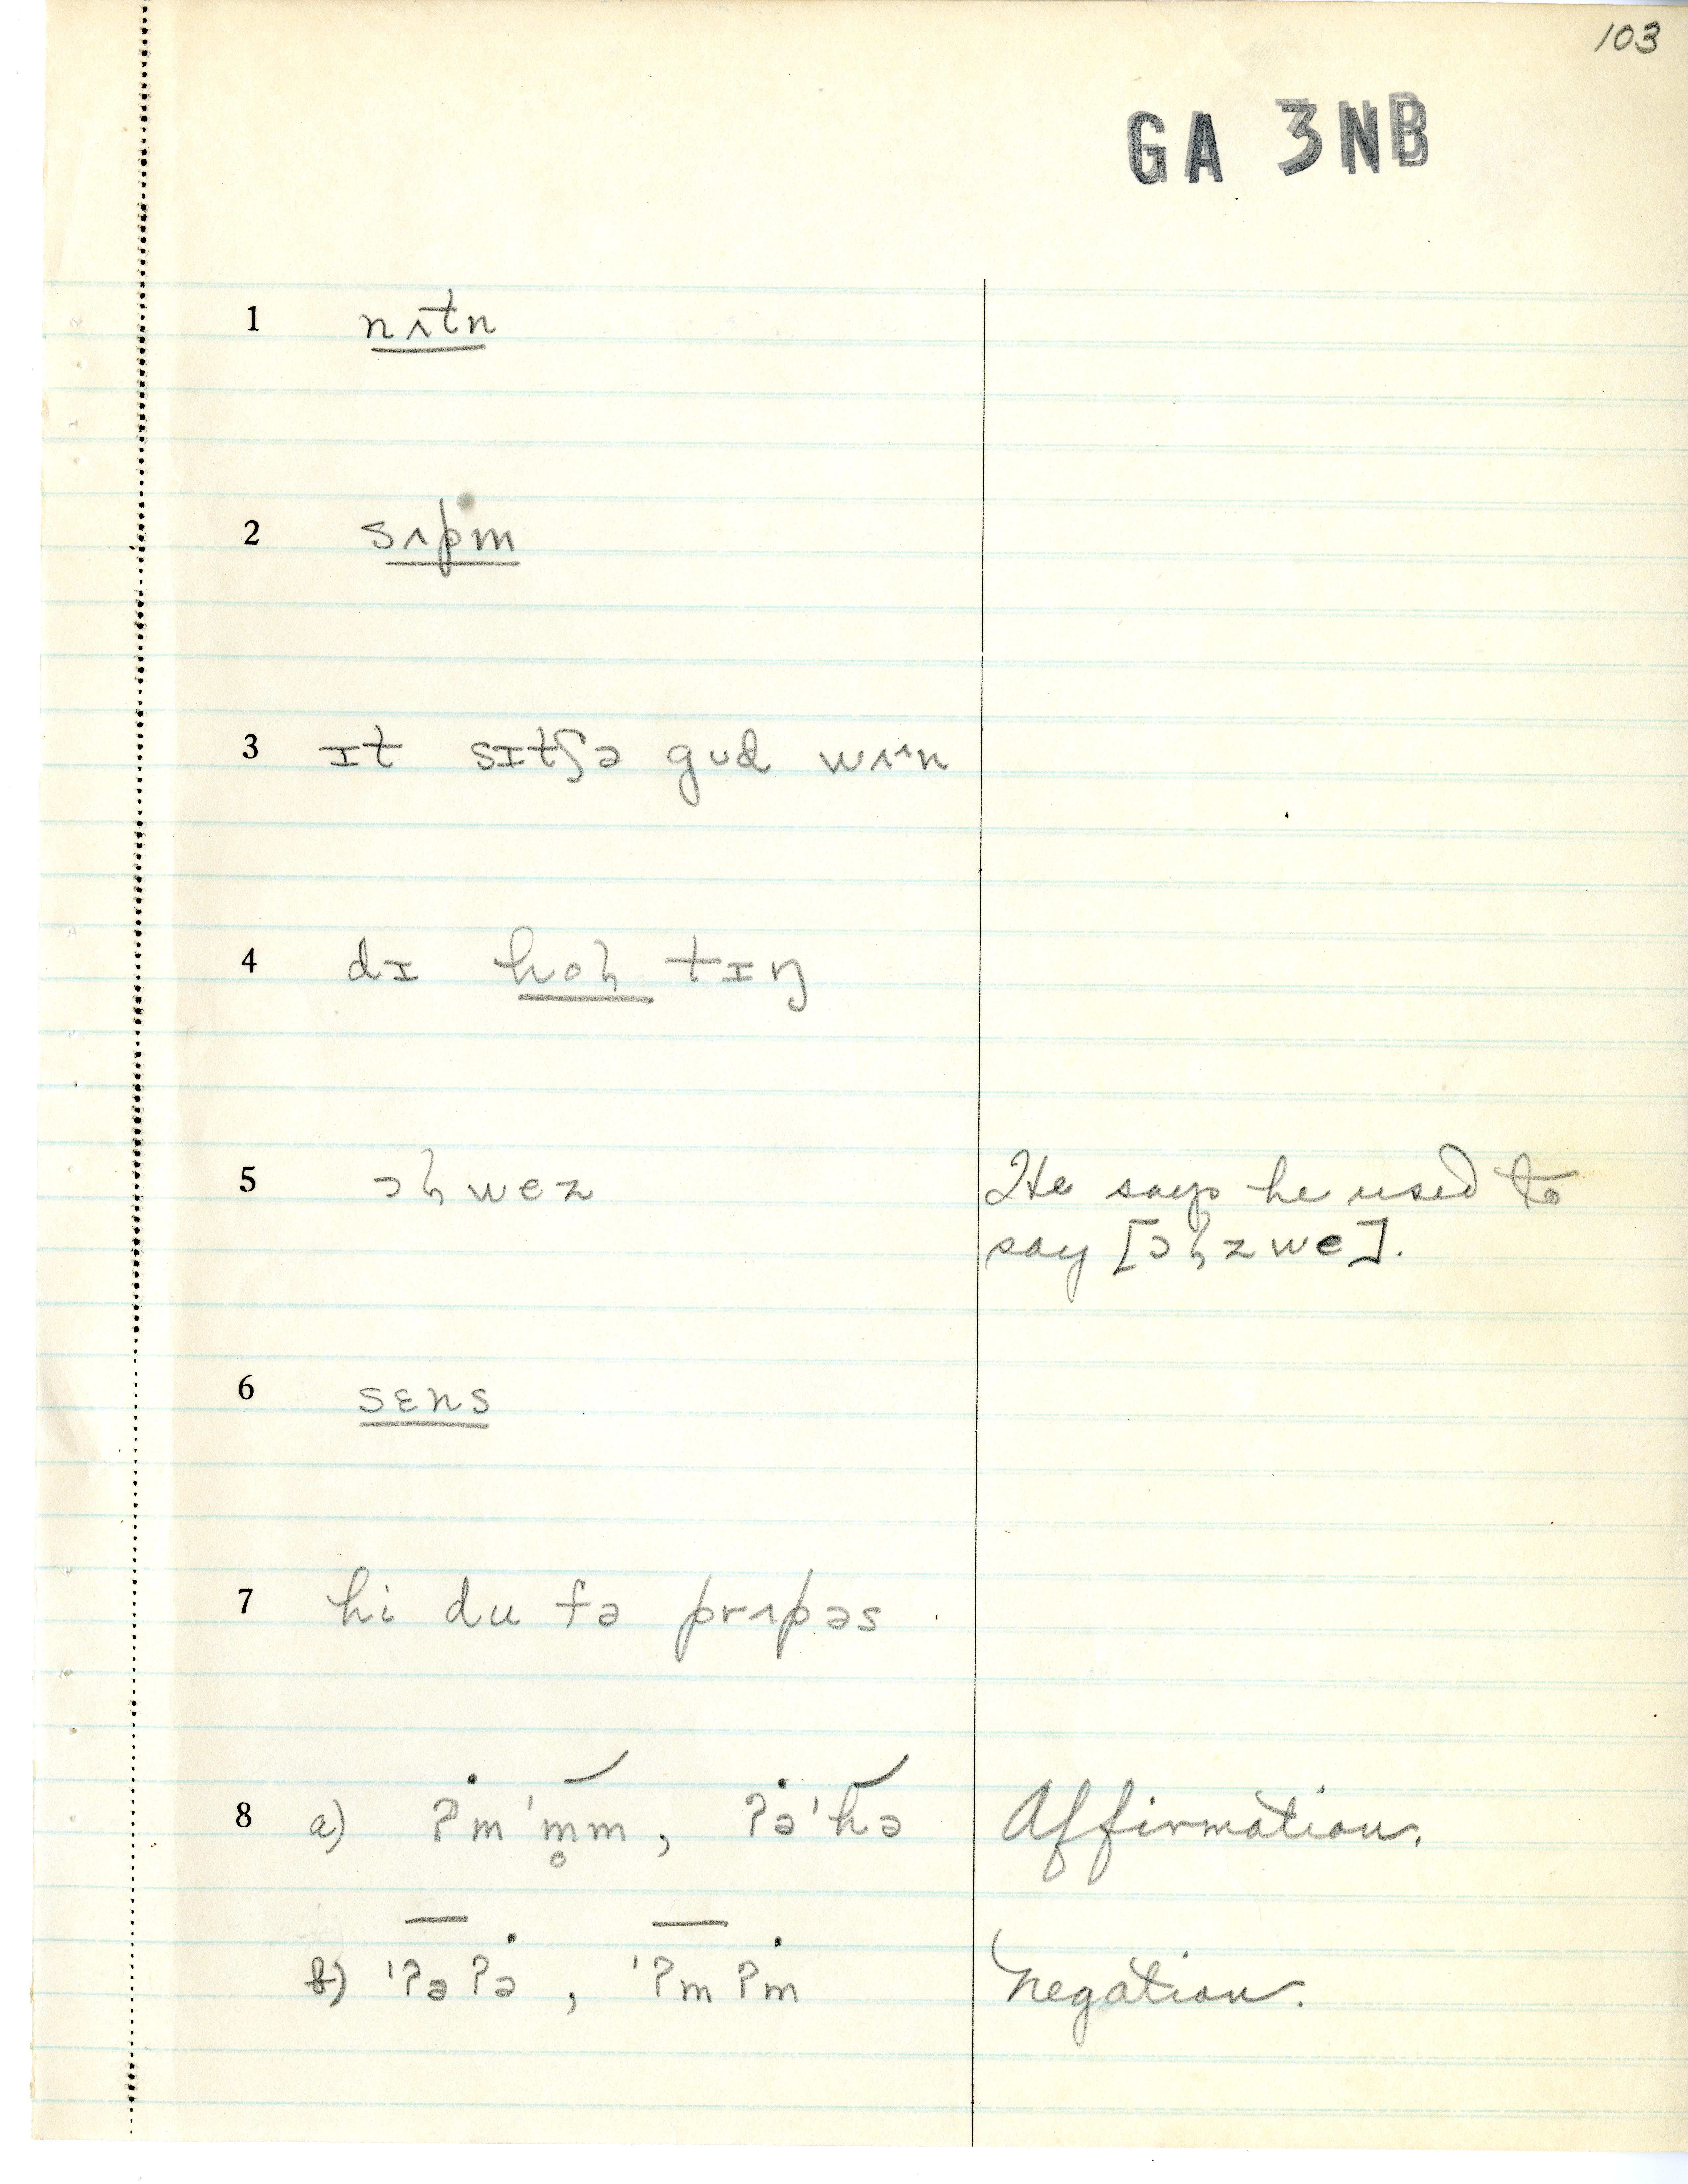 103
GA 3NB
1 nʌtn
2 sʌpm
3 ɪt sɪtʃə gud wʌ^^n
4 dɪ hoɦ tɪŋ
5 ɔɦ wez He says he used to
say [ɔɦ z we].
6 sɛns
7 hi du fə prʌpəs
8 a) ʔm 'm̥m, ʔə'hə Affirmation.
b) 'ʔəʔə, 'ʔmʔm Negation.